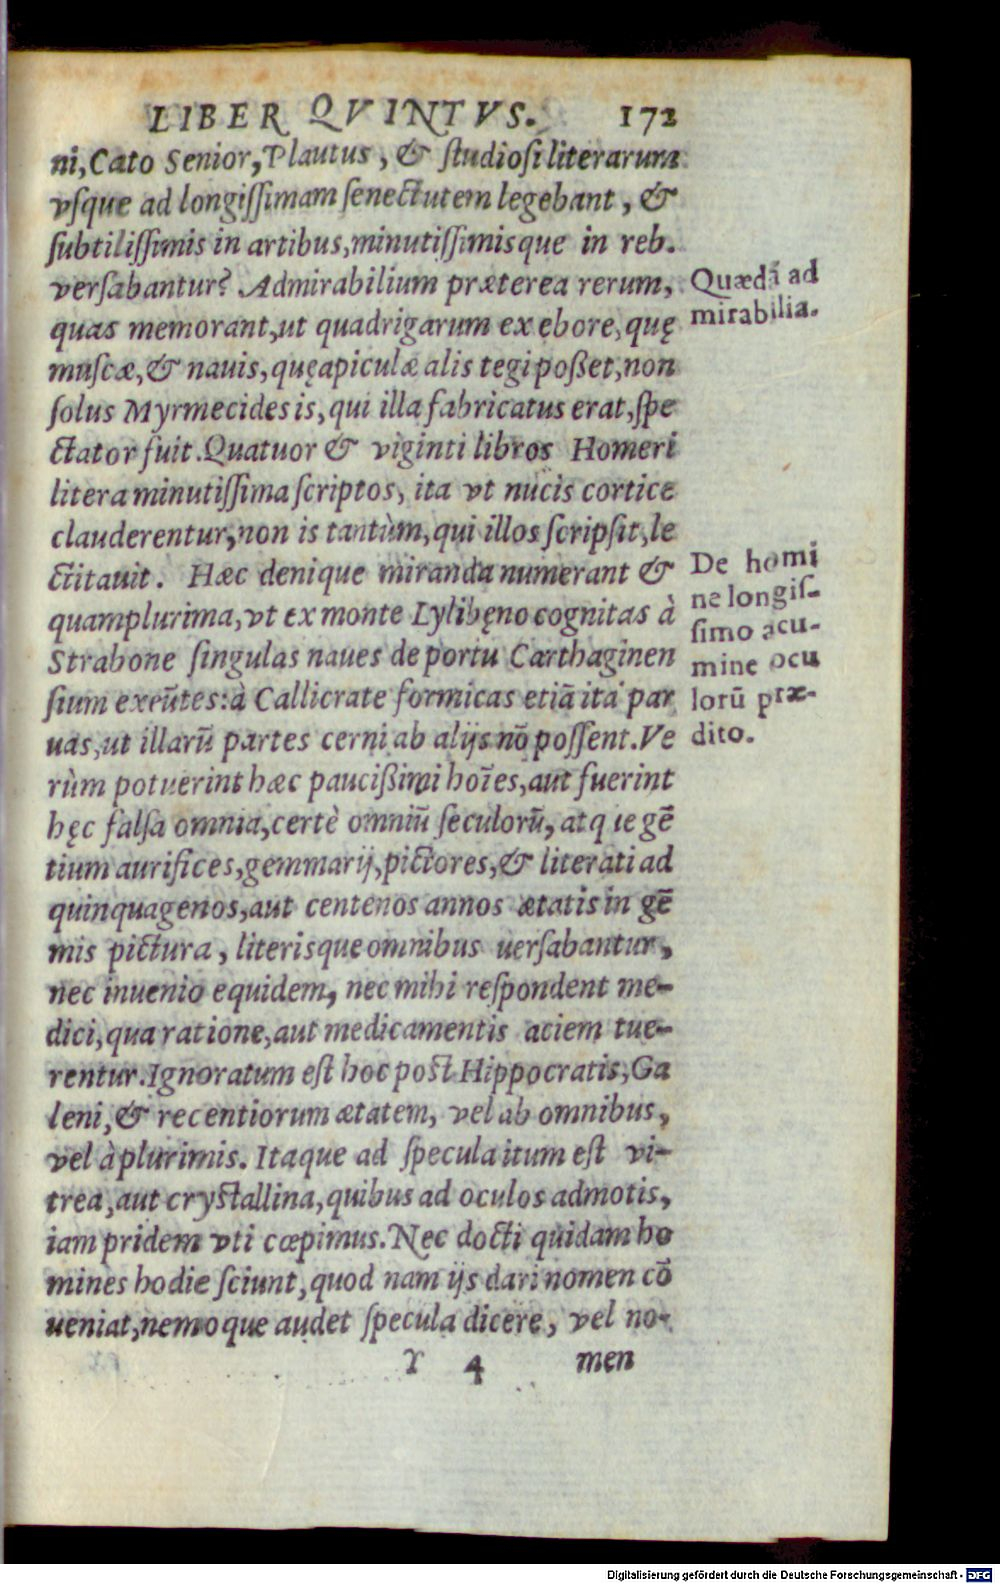 LIBER QVINTVS. 172
ni, Cato Senior, Plautus, & ſtudioſi literarum
vſque ad longiſſimam ſenectutem legebant, &
ſubtiliſſimis in artibus, minutiſſimisque in reb.
verſabantur? Admirabilium præterea rerum,
quas memorant, ut quadrigarum ex ebore, quę
muſcæ, & nauis, quę apiculæ alis tegi poßet, non
ſolus Myrmecides is, qui illa fabricatus erat, ſpe
ctator fuit. Quatuor & viginti libros Homeri
litera minutiſſima ſcriptos, ita vt nucis cortice
clauderentur, non is tantùm, qui illos ſcripſit, le
ctitauit. Hæc denique miranda numerant &
quamplurima, vt ex monte Lylibęno cognitas à
Strabone ſingulas naues de portu Carthaginen
ſium exeūtes: à Callicrate formicas etiā ita par
uas, ut illarū partes cerni ab alijs nō poſſent. Ve
rùm potuerint hæc pauciſſimi hoīes, aut fuerint
hęc falſa omnia, certè omniū ſeculorū, atque gē
tium aurifices, gemmarij, pictores, & literati ad
quinquagenos, aut centenos annos ætatis in gē
mis pictura, literisque omnibus uerſabantur,
nec inuenio equidem, nec mihi reſpondent me-
dici, qua ratione, aut medicamentis aciem tue-
rentur. Ignoratum eſt hoc poſt Hippocratis, Ga
leni, & recentiorum ætatem, vel ab omnibus,
vel à plurimis. Itaque ad ſpecula itum eſt vi-
trea, aut cryſtallina, quibus ad oculos admotis,
iam pridem vti cœpimus. Nec docti quidam ho
mines hodie ſciunt, quod nam ijs dari nomen cō
ueniat, nemoque audet ſpecula dicere, vel no-
Y 4 men
Quædā ad
mirabilia.
De homi
ne longiſ-
ſimo acu-
mine ocu
lorū præ-
dito.
Digitalisierung gefördert durch die Deutsche Forschungsgemeinschaft - DFG